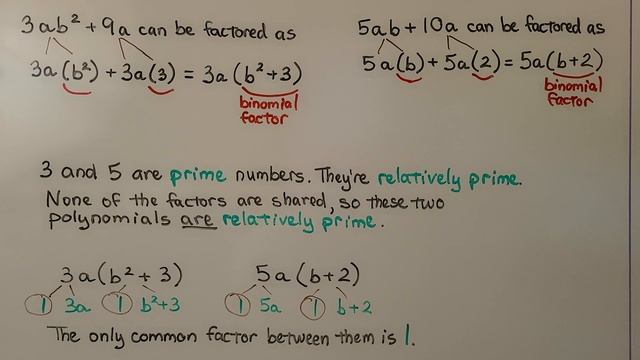 3ab² + 9a can be factored as
3a(b²) + 3a(3) = 3a(b²+3)
binomial
factor
5ab + 10a can be factored as
5a(b) + 5a(2) = 5a(b+2)
binomial
factor
3 and 5 are prime numbers. They're relatively prime.
None of the factors are shared, so these two
polynomials are relatively prime.
3a(b² + 3)
1 3a 1 b²+3
5a(b+2)
1 5a 1 b+2
The only common factor between them is 1.